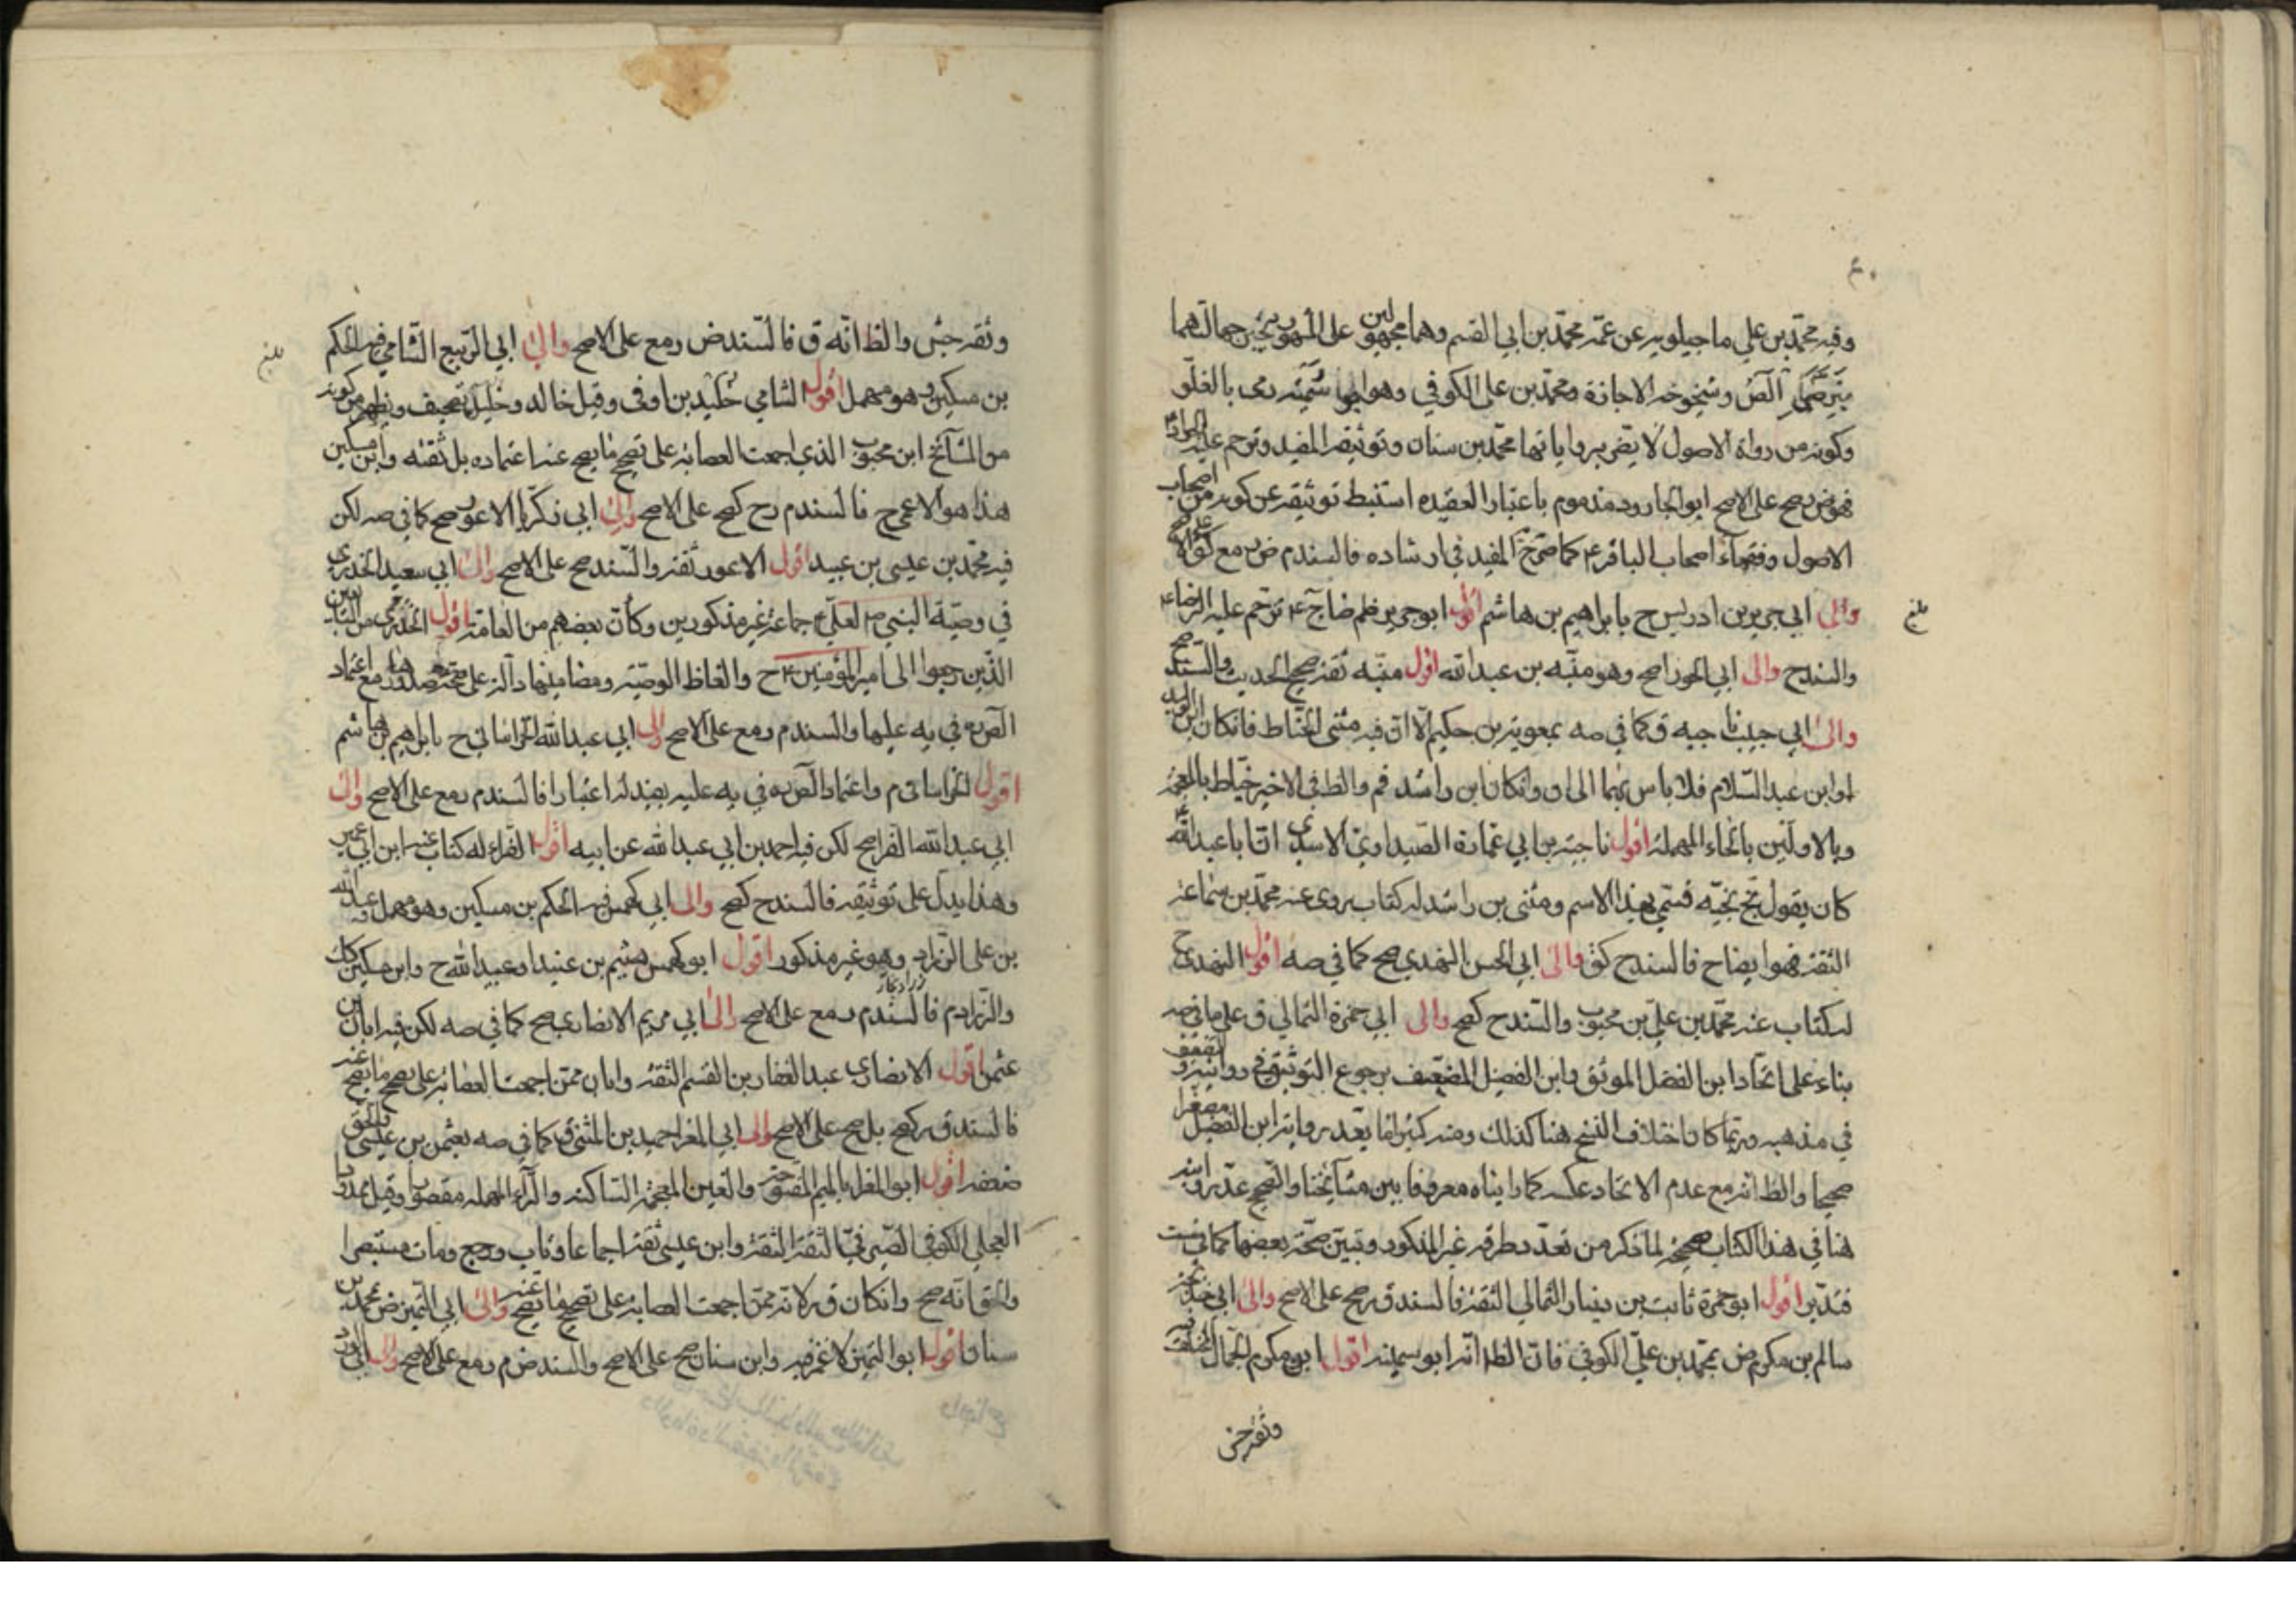 وفيه محمد بن علي ماجيلويه عن عمه محمد بن ابي القسم وهما مجهولين على المشهور
وشيخوخة الاجازة ومحمد بن علي الكوفي وهو ابو سمينه رمى بالغلو
وكونه من رواة الاصول لا يضر بروايتها محمد بن سنان وتوثيقه المفيد وترحم عليه
صح على الاصح ابو الجارود مذموم باعتبار العقيده استنبط توثيقه عن كونه من اصحاب
الاصول وفقهاء اصحاب الباقر ع كما صرح المفيد في ارشاده فالسند م
والى ابي جرير بن ادريس ح بابراهيم بن هاشم اقول ابو جرير ترحم عليه الرضا ع
والسند ح والى ابي الجوزا صح وهو منبه بن عبد الله اقول منبه ثقة صحيح الحديث والسند صح
والى ابي حبيب ناجيه ق كما في صه بمعوية بن حكيم الا ان فيه مثنى الحناط فان كان ابن الوليد
او ابن عبد السلام فلا باس بهما الى ان وان كان ابن راشد فم والظ في الاخير خياط بالمعجمة
وبالاولين بالحاء المهملة اقول ناجية بن ابي عمارة الصيداوي الاسدي ان ابا عبد الله ع
كان يقول نج نجيه فسمى بهذا الاسم ومثنى بن راشد له كتاب يروى عنه محمد بن سماعة
الثقة فهو ايضا ح فالسند ح كق والى ابي الحسن النهدي صح كما في صه اقول النهدي ح
له كتاب عنه محمد بن علي بن محبوب والسند ح كصح والى ابي حمزة الثمالي ق على ما في صه
بناء على اتحاد ابن الفضل الموثق وابن الفضيل المضعف برجوع التوثيق في روايته و
في مذهبه وربما كان اختلاف النسخ هنا كذلك ومنه كثيرا ما يعد رواية ابن الفضيل مصغرا
صحيحا والظ انه مع عدم الاتحاد عكسه كما راينا معروفا بين مشايخنا والصحيح عد روايته
هنا في هذا الكتاب صحيحة لما ذكر من تعدد طرقه غير المذكور وتبين صحة بعضها كما في ست
فتدبر اقول ابو حمزة ثابت بن دينار الثمالي الثقة فالسند ق صح على الاصح والى ابي خديجة
سالم بن مكرم ض بمحمد بن علي الكوفي فان الظ انه ابو سمينه اقول ابن مكرم الجمال
وثقه جش
وثقه جش والظ انه ق فالسند ض مع على الاصح والى ابي الربيع الشامي فيه الحكم
بن مسكين وهو مهمل اقول الشامي خليد بن اوفى وقيل خالد وخليل تصحيف ويظهر من كونه
من المشايخ ابن محبوب الذي اجمعت العصابة على تصحيح ما يصح عنه اعتماده بل ثقته وابن مسكين
هذا هو الاعمى ح فالسند م ح كصح على الاصح والى ابي زكريا الاعور صح كما في صه لكن
فيه محمد بن عيسى بن عبيد اقول الاعور ثقة والسند صح على الاصح والى ابي سعيد الخدري
في وصية النبي ص لعلي ع جماعة غير مذكورين وكان بعضهم من العامة اقول الخدري من السابقين
الذين رجعوا الى امير المؤمنين ع ح والفاظ الوصية ومضامينها دالة على صحة صدورها مع اعتماد
الص ره في يه عليها والسند م مع على الاصح والى ابي عبد الله الخراساني ح بابراهيم بن هاشم
اقول الخراساني م واعتماد الص ره في يه عليه يفيد له اعتبارا فالسند م مع على الاصح والى
ابي عبد الله الفرا صح لكن فيه احمد بن ابي عبد الله عن ابيه اقول الفراء له كتاب عنه ابن ابي عمير
وهذا يدل على توثيقه فالسند ح كصح والى ابي كهمس فيه الحكم بن مسكين وهو مهمل وعبد الله
بن علي الزراد وهو غير مذكور اقول ابو كهمس هيثم بن عبيد او عبيد الله ح وابن مسكين كك
والزراد م فالسند م مع على الاصح والى ابي مريم الانصاري صح كما في صه لكن فيه ابان بن
عثمن اقول الانصاري عبد الغفار بن القسم الثقة وابان ممن اجمعت العصابة على تصحيح ما يصح عنه
فالسند ق كصح بل صح على الاصح والى ابي المغرا حميد بن المثنى ق كما في صه بعثمن بن عيسى
ضعفه اقول ابو المغرا بالميم المفتوحة والغين المعجمة الساكنة والراء المهملة مقصورا وقيل ممدودا
العجلي الكوفي الصيرفي الثقة الثقة وابن عيسى ثقة اجماعا وتاب ورجع ومات مستبصرا
والحق انه صح وان كان ق لانه ممن اجمعت العصابة على تصحيح ما يصح عنه والى ابي النمير ض بمحمد بن
سنان اقول ابو النمير لا غمز فيه وابن سنان صح على الاصح والسند ض م مع على الاصح والى ابي